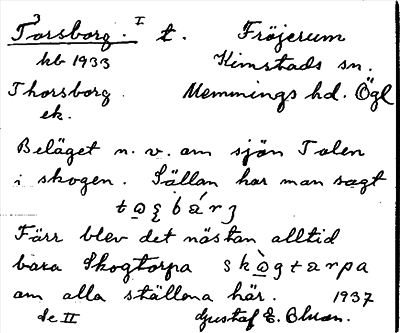 Torsborg. I t. Fröjerum
kb 1933 Kimstads sn.
Thorsborg Memmings hd. Ögl
ek.
Beläget n. v. om sjön Talen
i skogen. Sällan har man sagt
Förr blev det nästan alltid
bara Skogtorpa skògtarpa
om alla ställena här. 1937
Se II Gustaf E. Bluan.